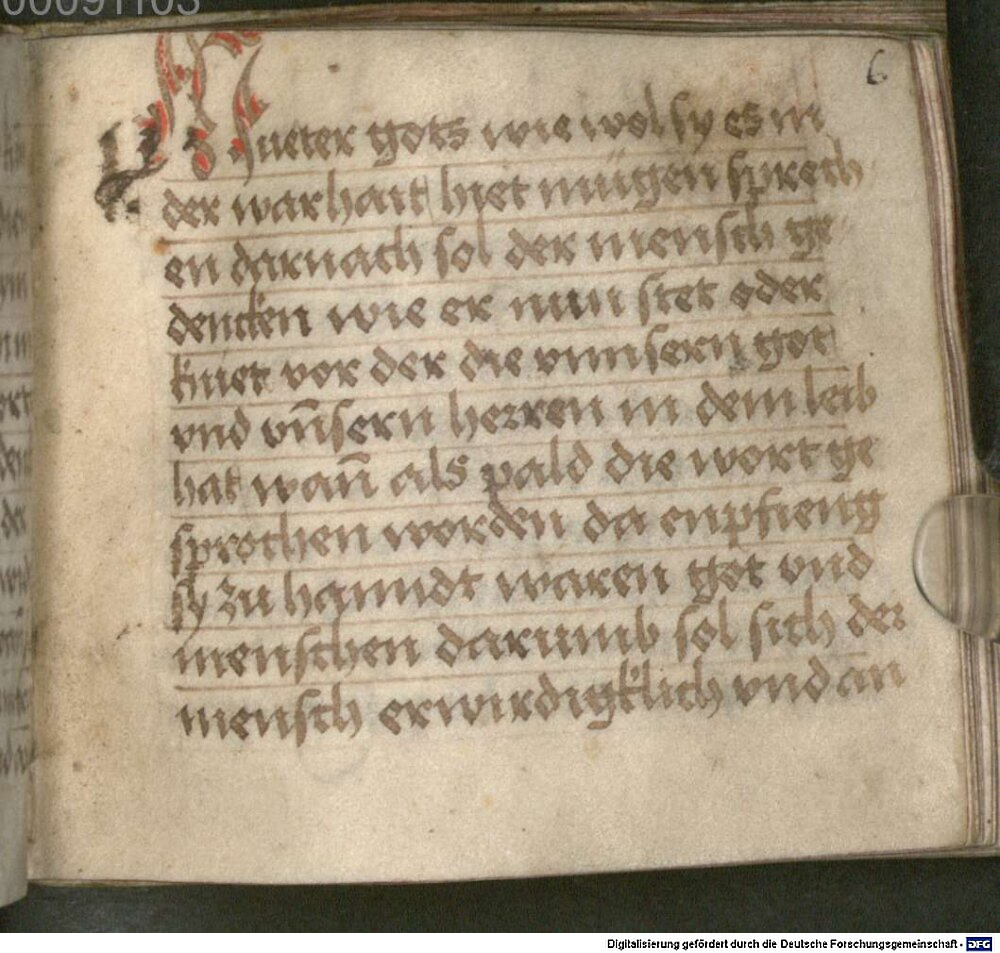 00091103
6
Mueter gots wie wol sy es in
der warhait hiet mügen sprech
en darnach sol der mensch ge
dencken wie er nun stet oder
kniet vor der die vnnsern got
vnd vñsern herren in dem leib
hat wañ als pald die wort ge
sprochen worden da enpfieng
sy zu hanndt waren got vnd
menschen darumb sol sich der
mensch erwirdigklich vnd an
Digitalisierung gefördert durch die Deutsche Forschungsgemeinschaft - DFG